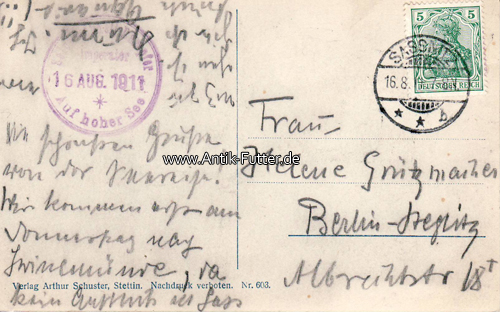 Imperator
16 AUG. 1911
Auf hoher See
5 5
SASSNITZ
16.8.
DEUTSCHES REICH
* * b
Die schönsten Grüße
von der Seereise!
Wir kommen erst am
Donnerstag nach
Swinemünde, da
kein Anschluß in Sass
Frau
Helene Grützmacher
Berlin-Steglitz
Albrechtstr 18 I
www.Antik-Futter.de
Verlag Arthur Schuster, Stettin. Nachdruck verboten. Nr. 603.